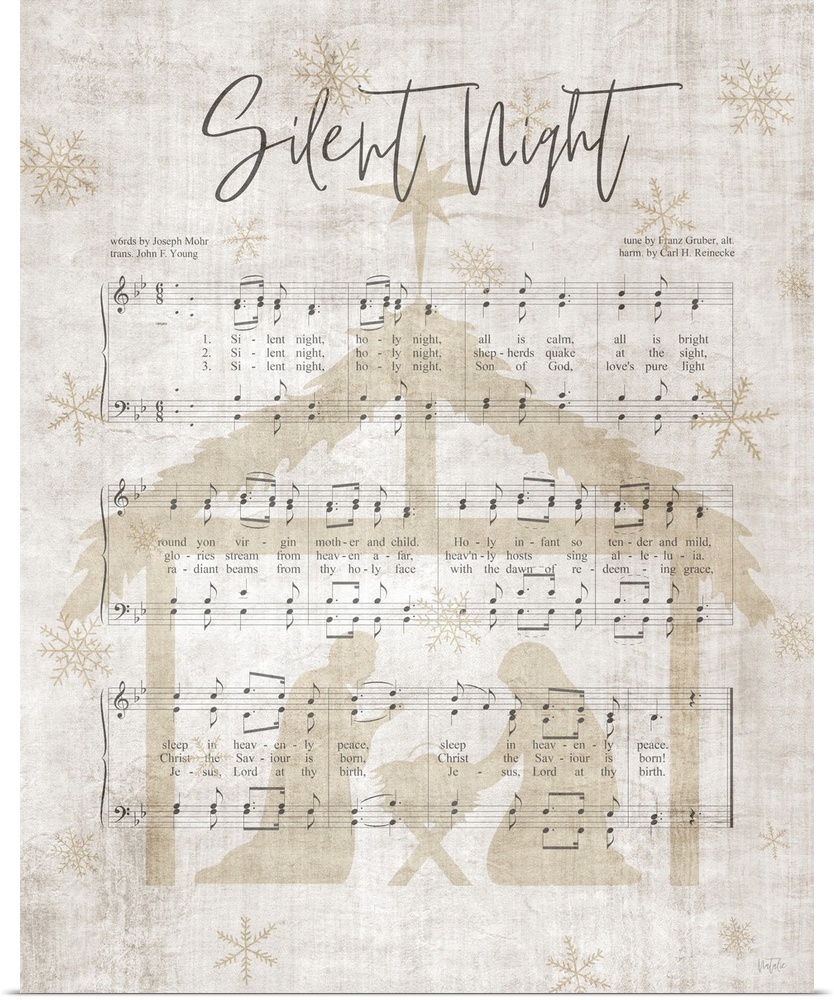 Silent Night
w6rds by Joseph Mohr
trans. John F. Young
tune by Franz Gruber, alt.
harm. by Carl H. Reinecke
1. Si - lent night, ho - ly night, all is calm, all is bright
2. Si - lent night, ho - ly night, shep - herds quake at the sight,
3. Si - lent night, ho - ly night, Son of God, love's pure light
round yon vir - gin moth - er and child. Ho - ly in - fant so ten - der and mild,
glo - ries stream from heav - en a - far, heav'n - ly hosts sing al - le - lu - ia.
ra - diant beams from thy ho - ly face with the dawn of re - deem - ing grace,
sleep in heav - en - ly peace, sleep in heav - en - ly peace.
Christ the Sav - iour is born, Christ the Sav - iour is born!
Je - sus, Lord at thy birth, Je - sus, Lord at thy birth.
Natalie